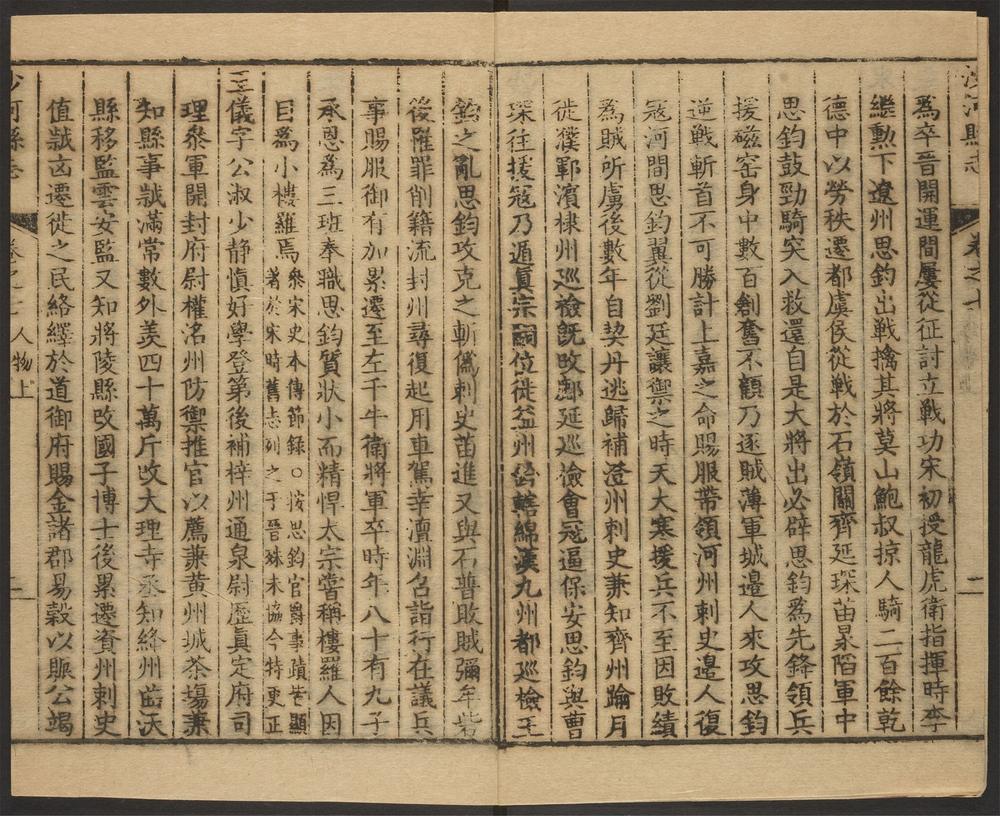 沙河縣志
卷之七
二
為卒晉開運間屢從征討立戰功宋初授龍虎衛指揮時李
繼勳下遼州思鈞出戰擒其將莫山鮑叔掠人騎二百餘乾
德中以勞秩遷都虞侯從戰於石嶺關齊延琛苗杲陷軍中
思鈞鼓勁騎突入救還自是大將出必辟思鈞為先鋒領兵
援磁窑身中數百創奮不顧乃逐賊薄軍城邉人來攻思鈞
逆戰斬首不可勝計上嘉之命賜服帶領河州刺史邉人復
寇河間思鈞翼從劉廷讓禦之時天大寒援兵不至因敗績
為賊所虜後數年自契丹逃歸補澄州刺史兼知齊州踰月
徙濮鄆濱棣州巡檢旣改鄜延巡檢會寇逼保安思鈞與曹
琛往援寇乃遁真宗嗣位徙益州鈐轄綿漢九州都巡檢王
鈞之亂思鈞攻克之斬偽刺史苗進又與石普敗賊彌牟砦
後罹罪削籍流封州尋復起用車駕幸澶淵召詣行在議兵
事賜服御有加累遷至左千牛衛將軍卒時年八十有九子
承恩為三班奉職思鈞質狀小而精悍太宗嘗稱樓羅人因
目為小樓羅焉
叅宋史本傳節録○按思鈞官爵事蹟皆顯
著於宋時舊志列之于晉殊未協今特更正
王儀字公淑少静慎好學登第後補梓州通泉尉歷真定府司
理叅軍開封府尉權洺州防禦推官以薦兼黄州城茶塲兼
知縣事誠滿常數外羡四十萬斤改大理寺丞知絳州曲沃
縣移監雲安監又知將陵縣改國子博士後累遷資州刺史
值誠凶遷徙之民絡繹於道御府賜金諸郡易穀以賑公竭
沙河縣志
卷之七 人物上
二